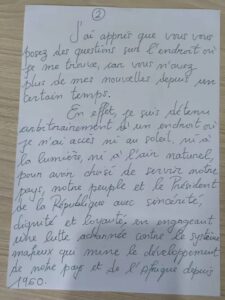 ②
J'ai appris que vous vous
posez des questions sur l'endroit où
je me trouve, car vous n'avez
plus de mes nouvelles depuis un
certain temps.
En effet, je suis détenu
arbitrairement à un endroit où
je n'ai accès ni au soleil, ni à
la lumière, ni à l'air naturel,
pour avoir choisi de servir notre
pays, notre peuple et le Président
de la République avec sincérité,
dignité et loyauté, en engageant
une lutte acharnée contre le système
mafieux qui mine le développement
de notre pays et de l'Afrique depuis
1960.